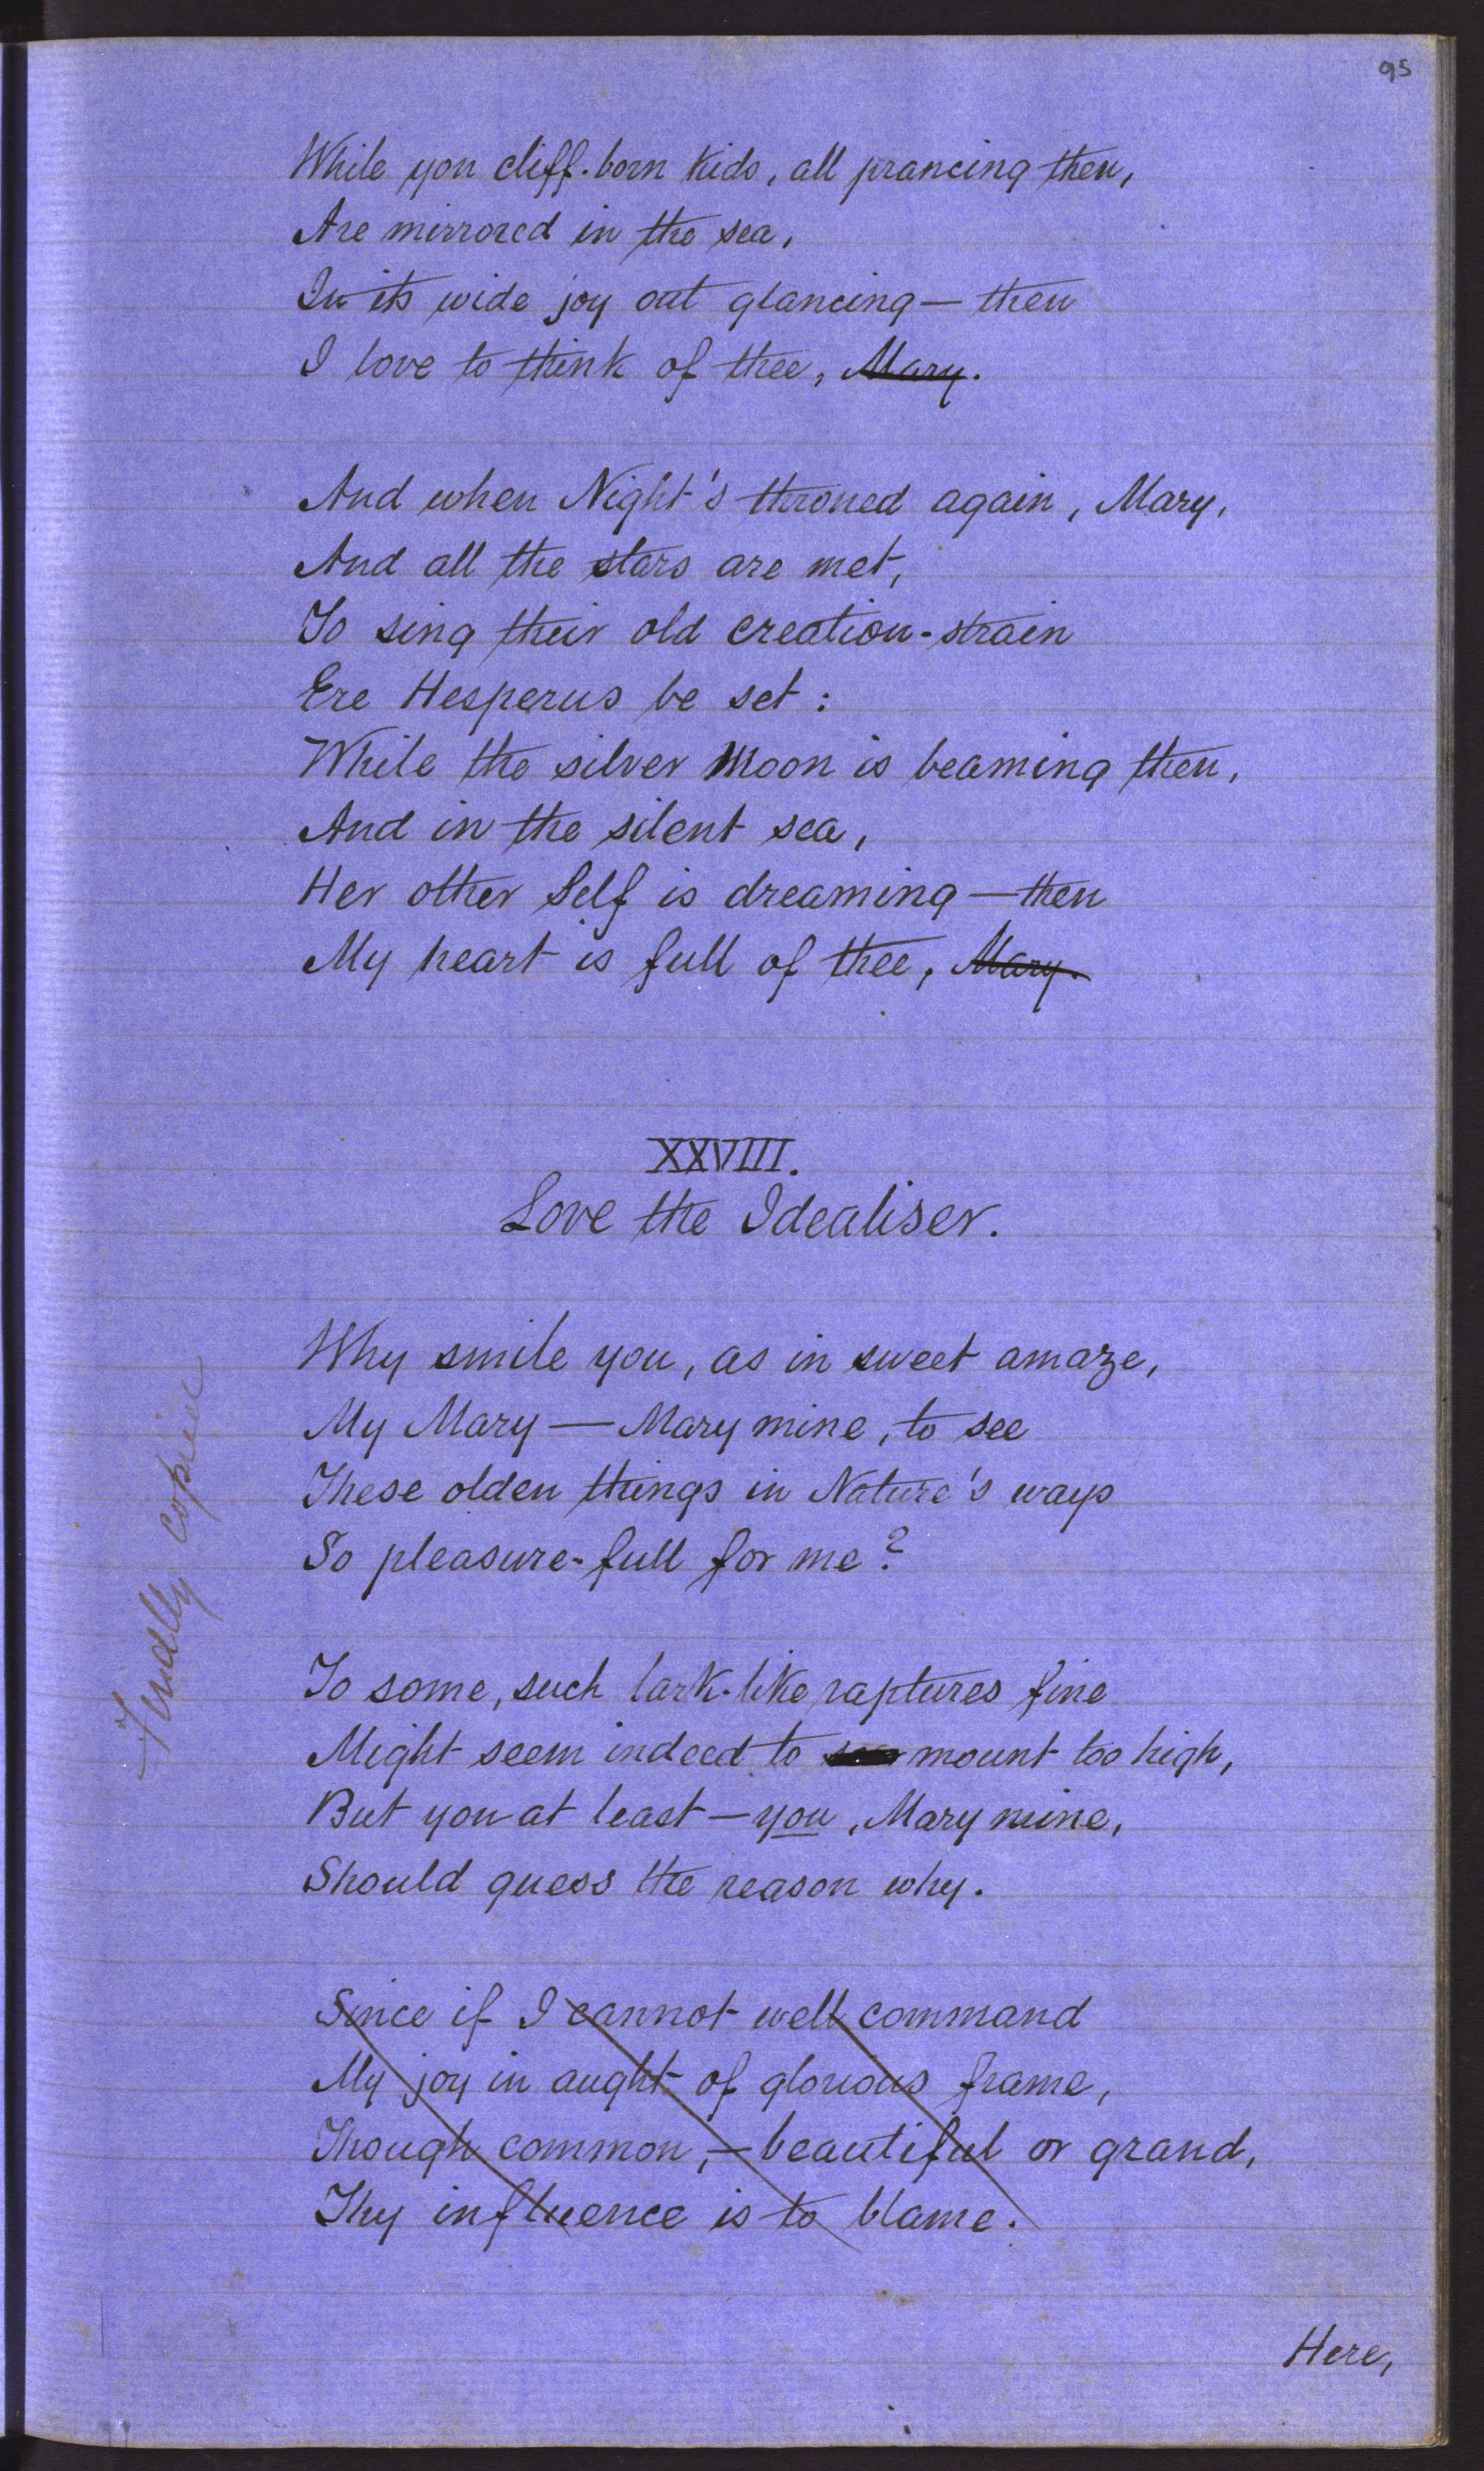 95
While yon cliff-born kids, all prancing then,
Are mirrored in the sea,
In its wide joy out glancing — then
I love to think of thee, Mary.
And when Night's throned again, Mary,
And all the stars are met,
To sing their old creation-strain
Ere Hesperus be set :
While the silver Moon is beaming then,
And in the silent sea,
Her other Self is dreaming — then
My heart is full of thee, Mary.
XXVIII.
Love the Idealiser.
Why smile you, as in sweet amaze,
My Mary — Mary mine, to see
These olden things in Nature's ways
So pleasure-full for me?
To some, such lark-like raptures fine
Might seem indeed to mount too high,
But you at least — you, Mary mine,
Should guess the reason why.
Since if I cannot well command
My joy in aught of glorious frame,
Though common, — beautiful or grand,
Thy influence is to blame.
Here,
Finally copied